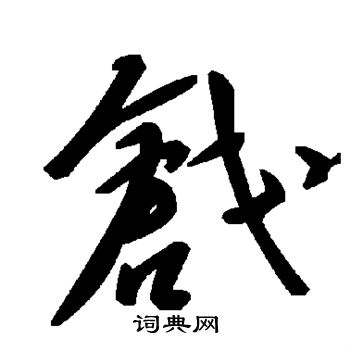 戧
词典网